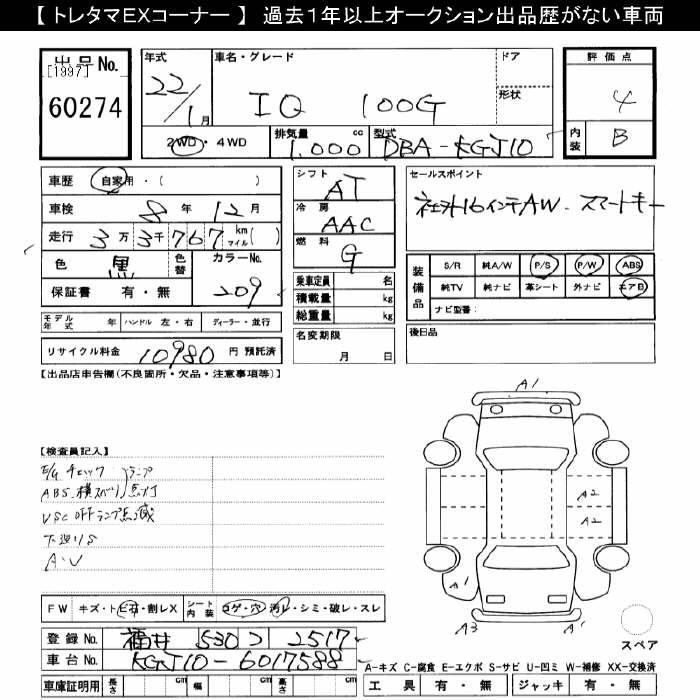 【 トレタマEXコーナー 】 過去1年以上オークション出品歴がない車両
出品No. [1997] 60274
年式 22/1月
車名・グレード IQ 100G
ドア
形状
評価点 4
内装 B
2WD・4WD
排気量 1,000 cc
型式 DBA-KGJ10
車歴 自家用・( )
車検 8年 12月
走行 3万3千767 km マイル( )
色 黒
色替
カラーNo. 209
保証書 有・無
モデル年式 年 ハンドル 左・右 ディーラー・並行
リサイクル料金 10980 円 預託済
シフト AT
冷房 AAC
燃料 G
乗車定員 名
積載量 kg
総重量 kg
名変期限 月 日
セールスポイント
社外16インチAW. スマートキー
装備品 S/R 純A/W P/S P/W ABS
純TV 純ナビ 革シート 外ナビ エアB
ナビ型番:
後日品
【出品店申告欄(不良箇所・欠品・注意事項等)】
【検査員記入】
E/G チェック ランプ
ABS.横スベリ 点灯
VSC OFFランプ点滅
下廻りS
A.U
A1
A2
A2
A1
A3
A1
スペア
FW キズ・トビ石・割レX
シート内装 コゲ・穴 汚レ・シミ・破レ・スレ
登録No. 福井 530 コ 2517
車台No. KGJ10-6017588
車庫証明用 長さ cm 幅 cm 高さ cm
A-キズ C-腐食 E-エクボ S-サビ U-凹ミ W-補修 XX-交換済
工具 有・無 ジャッキ 有・無